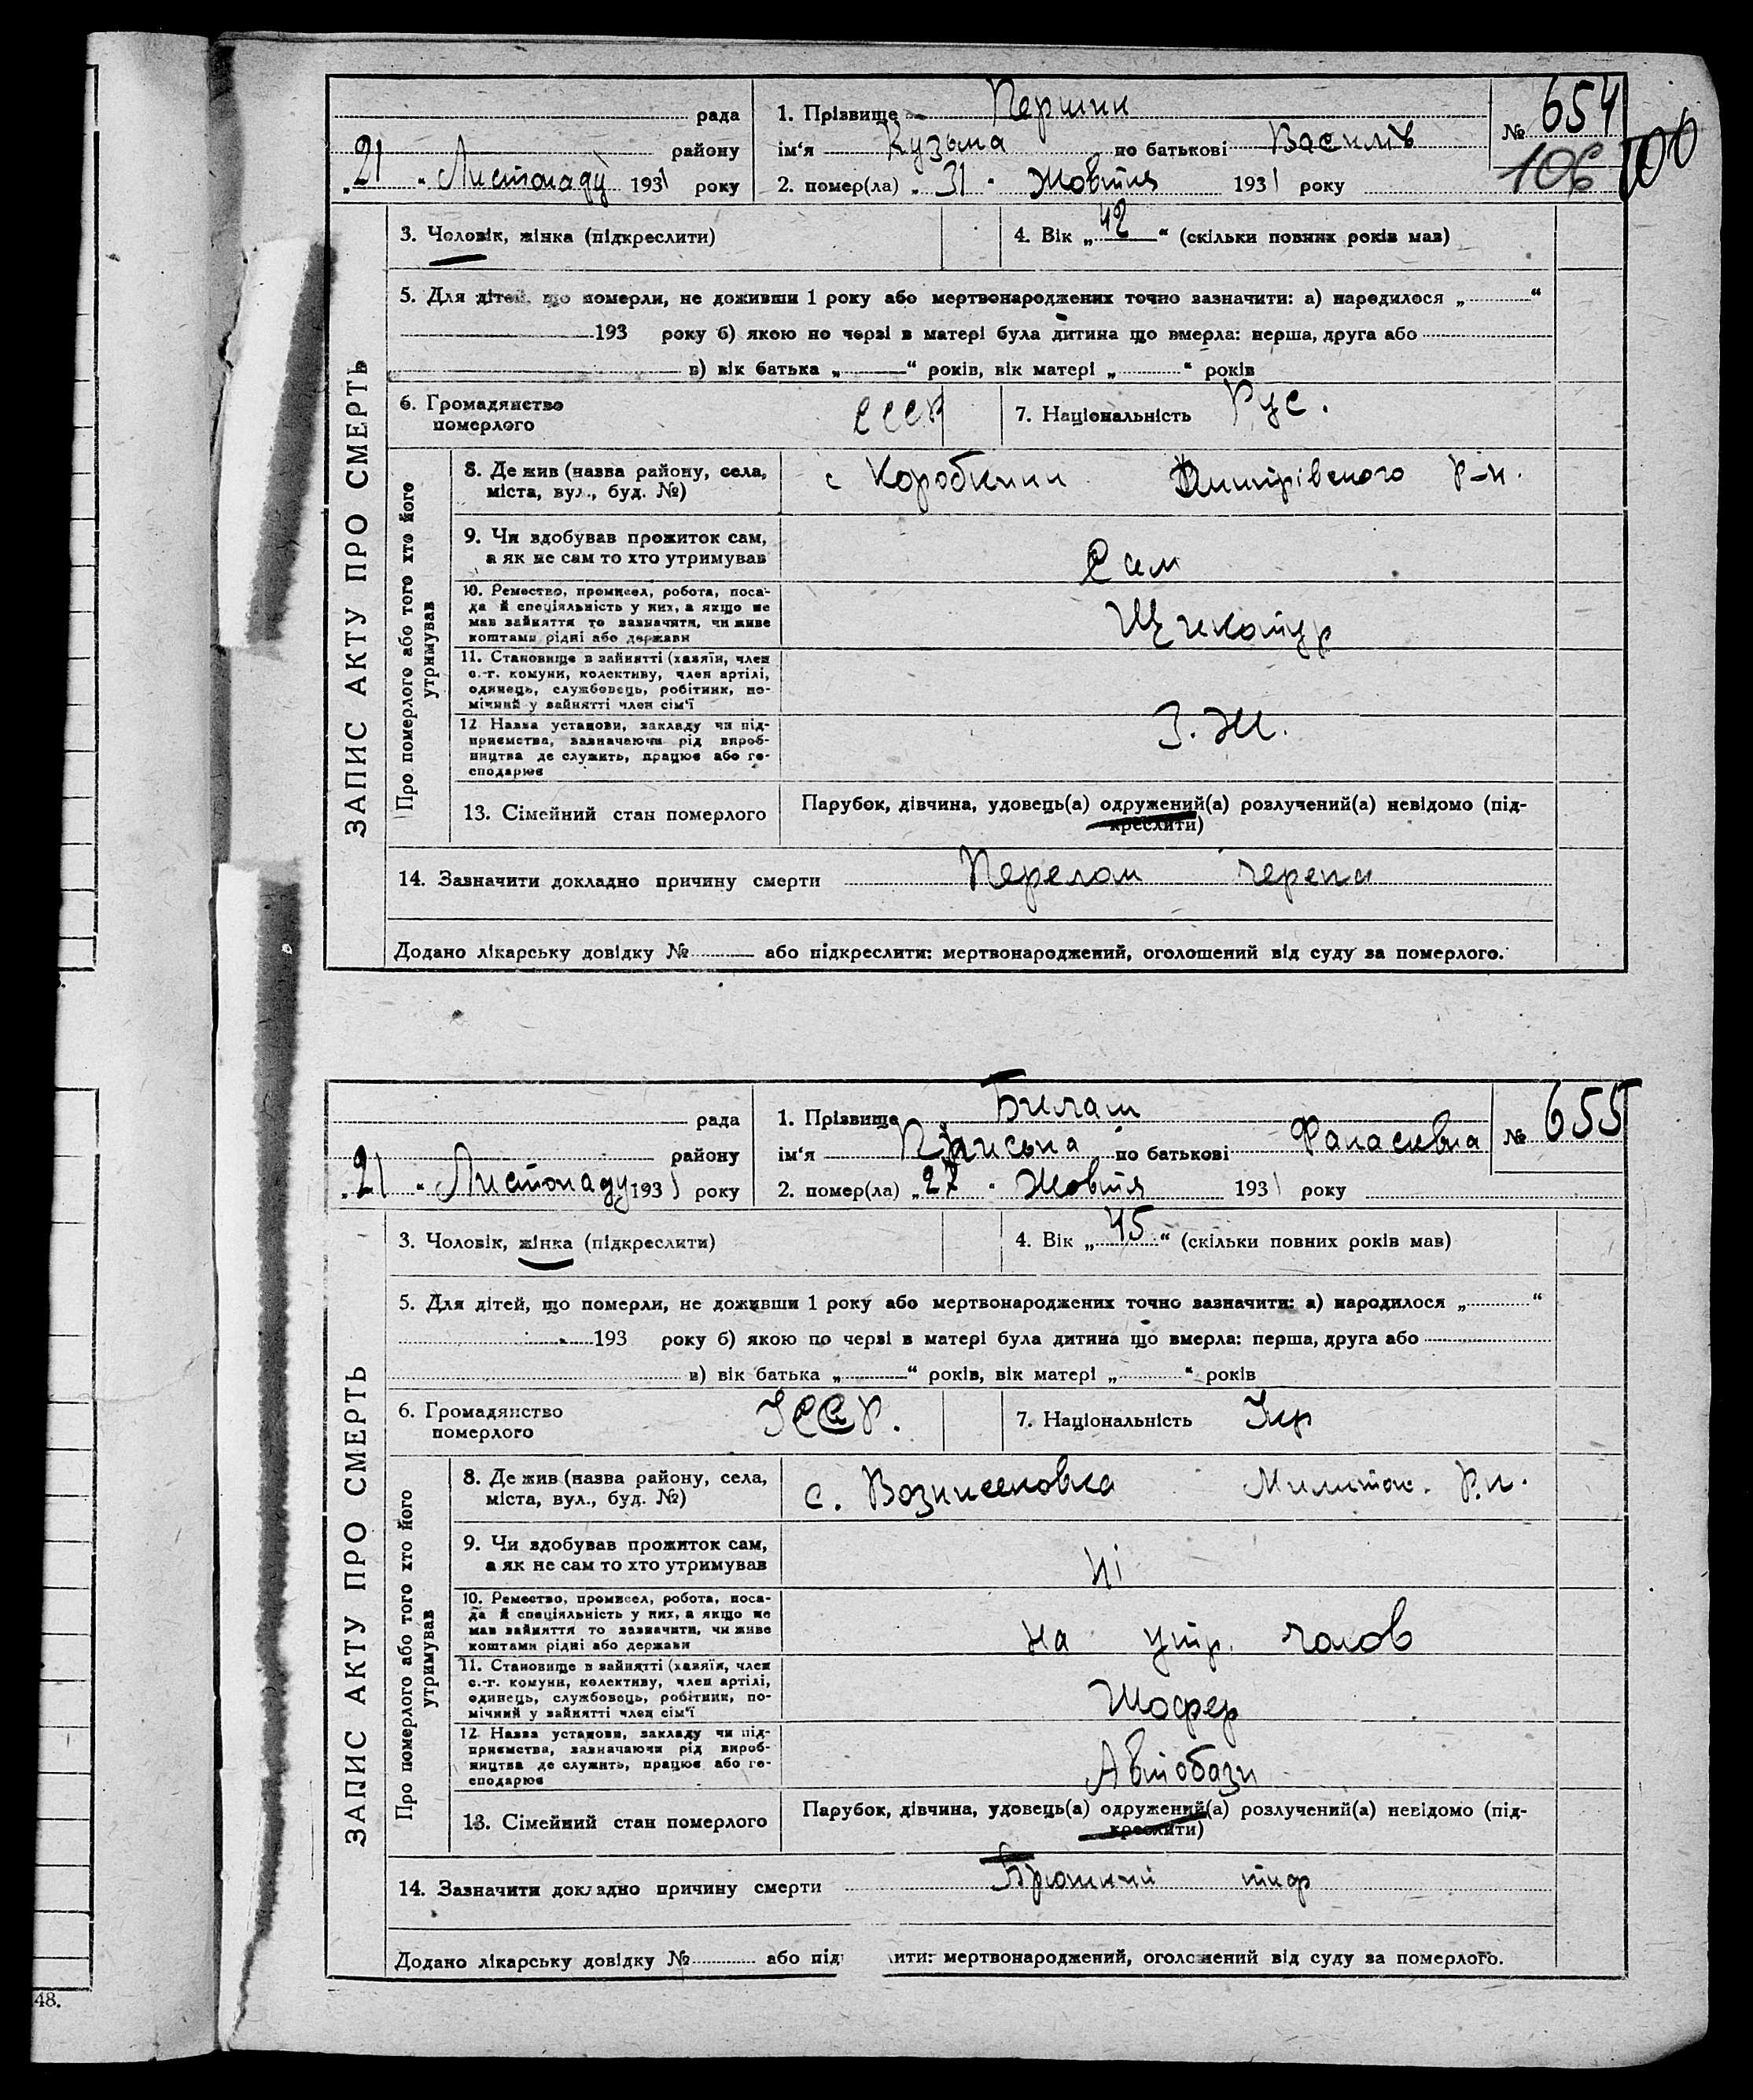 рада
1. Прізвище Першин
№ 654
району
ім'я Кузьма по батькові Василів
106
100
„21“ Листопаду 1931 року
2. помер(ла) „31“ Жовтня 1931 року
ЗАПИС АКТУ ПРО СМЕРТЬ
3. Чоловік, жінка (підкреслити)
4. Вік „42“ (скільки повних років мав)
5. Для дітей, що померли, не доживши 1 року або мертвонароджених точно зазначити: а) народилося „ “
193 року б) якою по черзі в матері була дитина що вмерла: перша, друга або
в) вік батька „ “ років, вік матері „ “ років
6. Громадянство померлого СССР
7. Національність Рус.
Про померлого або того хто його утримував
8. Де жив (назва району, села,
міста, вул., буд. №)
с Коробкини Дмитрівского р-н.
9. Чи здобував прожиток сам,
а як не сам то хто утримував
Сам
10. Ремество, промисел, робота, поса-
да й спеціяльність у них, а якщо не
мав зайняття то зазначити, чи живе
коштами рідні або держави
Щикатур
11. Становище в зайнятті (хазяїн, член
с.-г. комуни, колективу, член артілі,
одинець, службовець, робітник, по-
мічний у зайнятті член сім'ї
12 Назва установи, закладу чи під-
приємства, зазначаючи рід вироб-
ництва де служить, працює або го-
сподарює
З. Ж.
13. Сімейний стан померлого
Парубок, дівчина, удовець(а) одружений(а) розлучений(а) невідомо (під-
креслити)
14. Зазначити докладно причину смерти Перелом черепа
Додано лікарську довідку № або підкреслити: мертвонароджений, оголошений від суду за померлого.
рада
1. Прізвище Билаш
№ 655
району
ім'я Пріиська по батькові Фанасивна
„21“ Листопаду 1931 року
2. помер(ла) „27“ Жовтня 1931 року
ЗАПИС АКТУ ПРО СМЕРТЬ
3. Чоловік, жінка (підкреслити)
4. Вік „45“ (скільки повних років мав)
5. Для дітей, що померли, не доживши 1 року або мертвонароджених точно зазначити: а) народилося „ “
193 року б) якою по черзі в матері була дитина що вмерла: перша, друга або
в) вік батька „ “ років, вік матері „ “ років
6. Громадянство померлого УССР.
7. Національність Укр
Про померлого або того хто його утримував
8. Де жив (назва району, села,
міста, вул., буд. №)
с. Вознисеновка Милитоп. Р.н.
9. Чи здобував прожиток сам,
а як не сам то хто утримував
Ні
10. Ремество, промисел, робота, поса-
да й спеціяльність у них, а якщо не
мав зайняття то зазначити, чи живе
коштами рідні або держави
на утр. голов
11. Становище в зайнятті (хазяїн, член
с.-г. комуни, колективу, член артілі,
одинець, службовець, робітник, по-
мічний у зайнятті член сім'ї
Шофер
12 Назва установи, закладу чи під-
приємства, зазначаючи рід вироб-
ництва де служить, працює або го-
сподарює
Автобази
13. Сімейний стан померлого
Парубок, дівчина, удовець(а) одружений(а) розлучений(а) невідомо (під-
креслити)
14. Зазначити докладно причину смерти Брюшний тиф
Додано лікарську довідку № або під ити: мертвонароджений, оголошений від суду за померлого.
48.